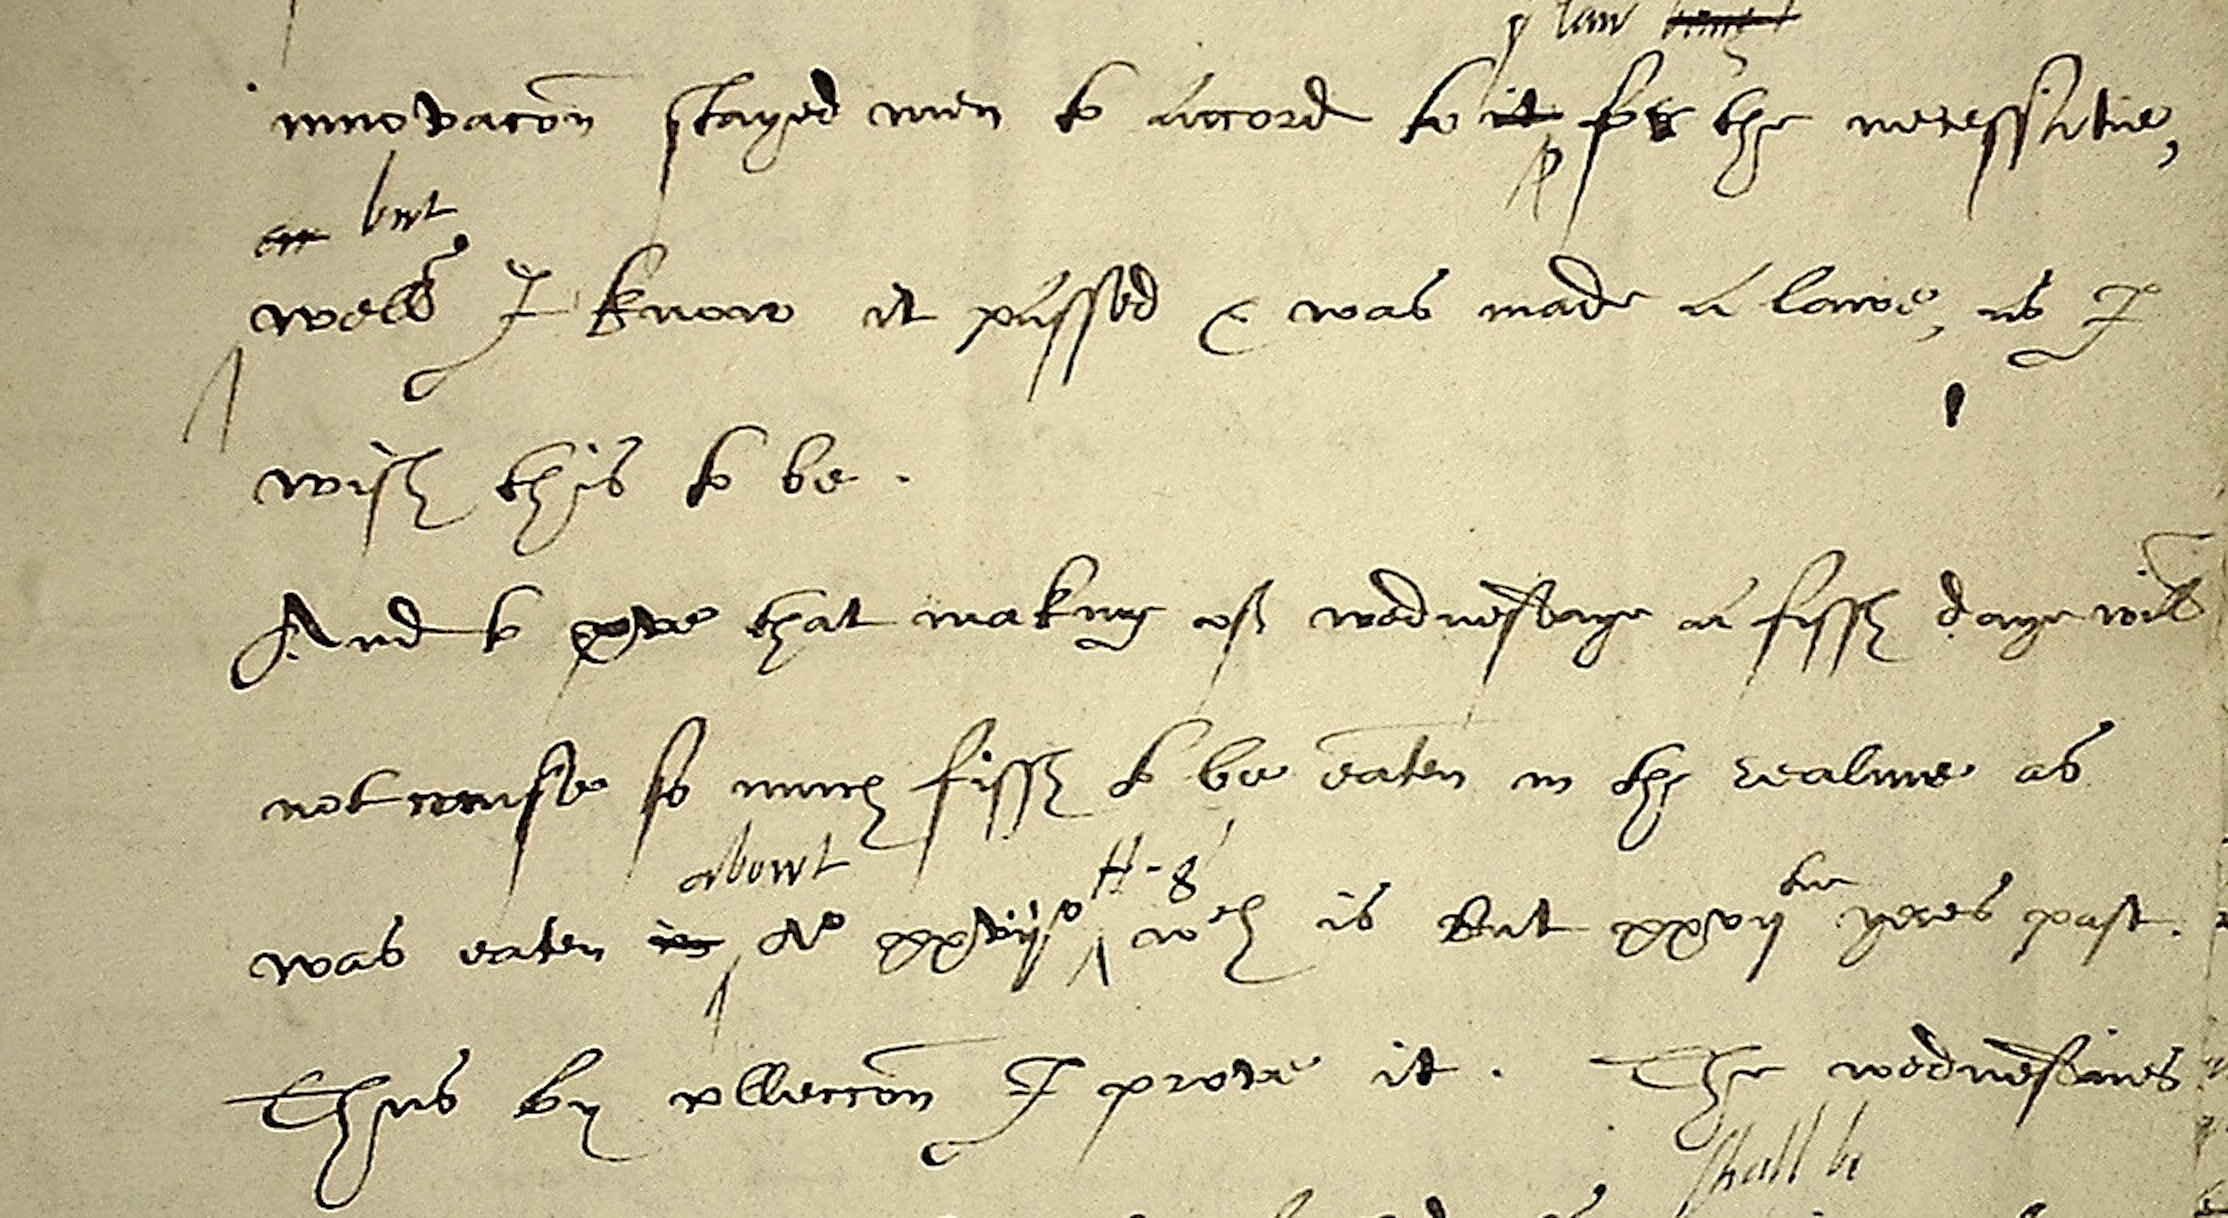 yt law being
innovacon stayed men to accord to it for the necessitie,
but
well I know it passed & was made a lawe, as I
wish this to be.
And to prove that making of wednesdaye a fissh daye will
not cause so much fissh to be eaten in the realme as
abowt H-8 tie
was eaten in Ao xxviijo wch is but xxvij yeres past.
Thus by colleccon I prove it. The wednesdaies
shall be